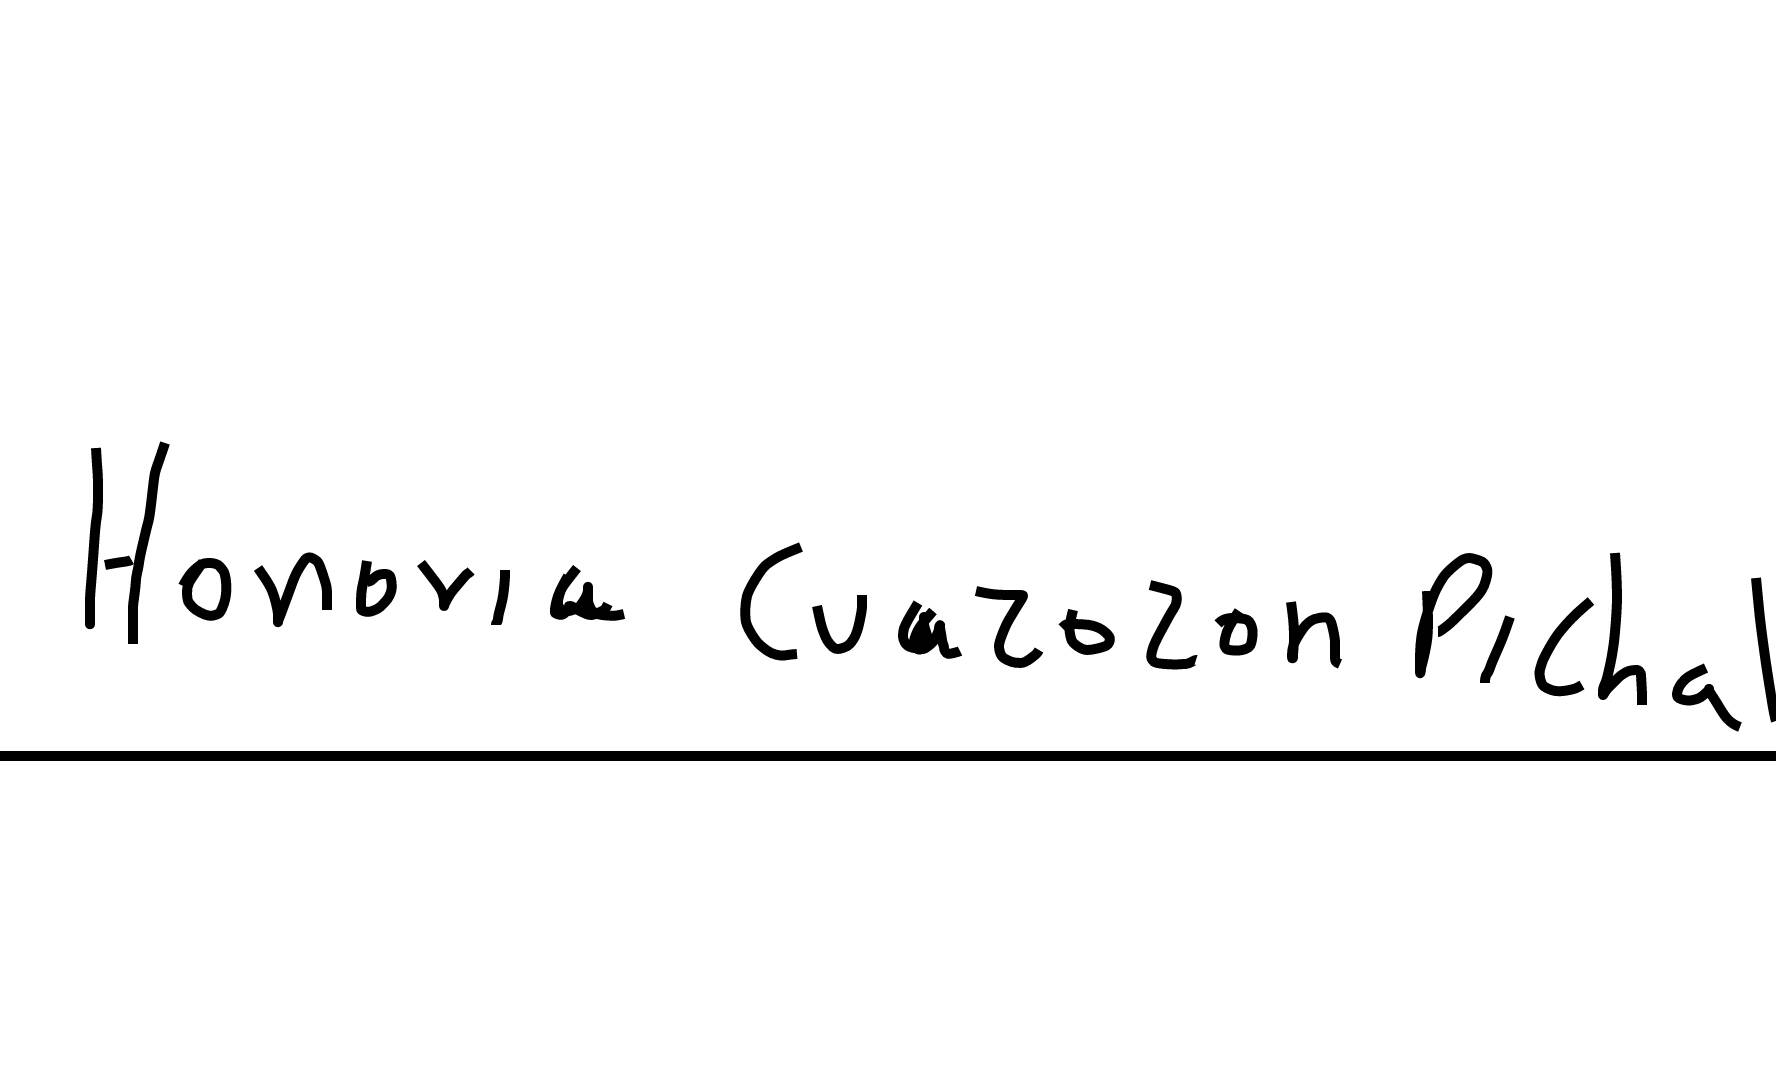 Honoria Cuazozon Pichal